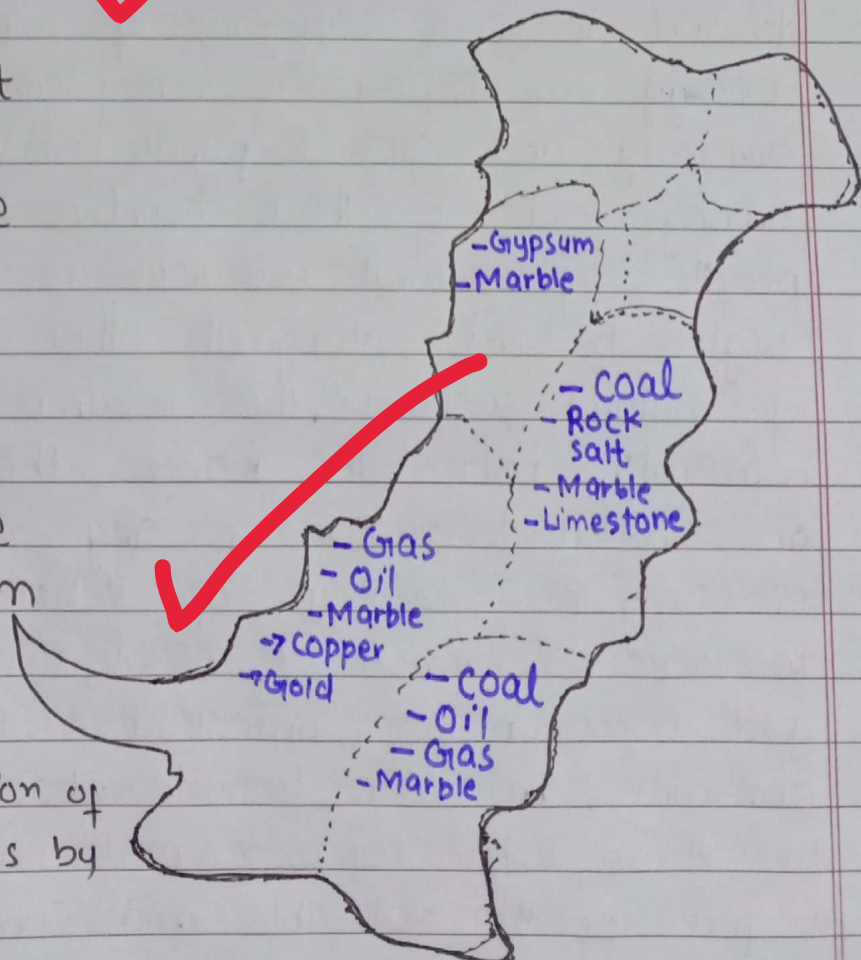 t
e
- Gypsum
- Marble
- Coal
- Rock
Salt
- Marble
- Limestone
e
- Gas
- Oil
n
- Marble
→ Copper
→ Gold
- Coal
- Oil
- Gas
- Marble
on of
s by